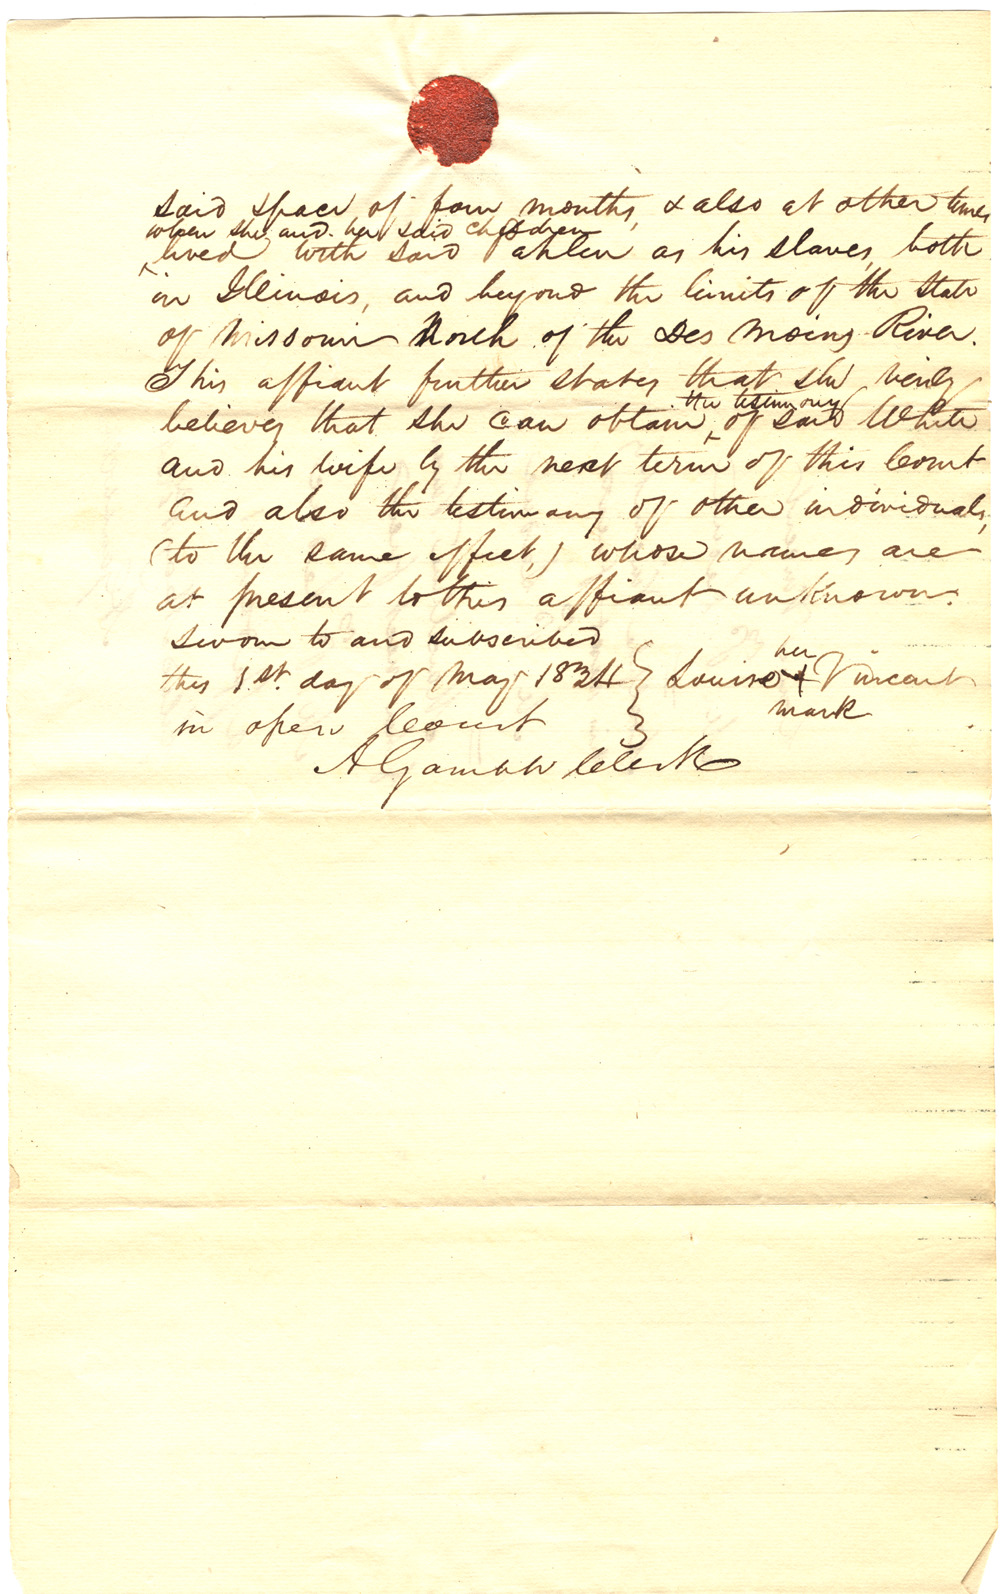 said space of four months, & also at other times
when she and her said children
lived with said as his slaves, both
in Illinois, and beyond the limits of the State
of Missouri North of the Des Moins River.
This affiant further states that she verily
the testimony
believes that she can obtain, of said White
and his wife by the next term of this Court
and also the testimony of other individuals,
(to the same effect,) whose names are
at present to this affiant unknown.
Sworn to and subscribed
her
this 1st. day of May 1834 } Louise + Vincent
mark
in open Court
A Gamble Clerk